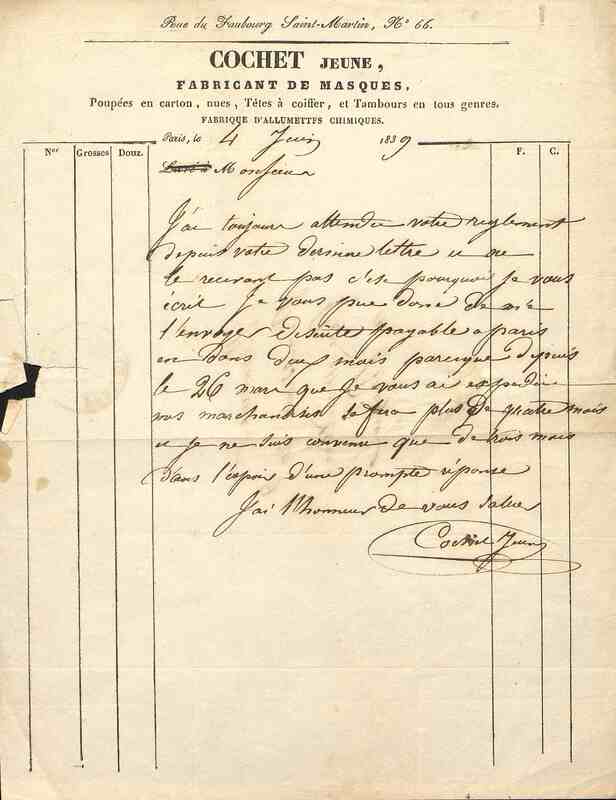 Rue du Faubourg Saint-Martin, N° 66.
COCHET JEUNE,
FABRICANT DE MASQUES,
Poupées en carton, nues, Têtes à coiffer, et Tambours en tous genres.
FABRIQUE D'ALLUMETTES CHIMIQUES.
Paris, le 4 Juin 1839
Nos Grosses Douz. F. C.
Livré à Monsieur
J'ai toujours attendu votre reglement
depuis votre derniere lettre et ne
le recevant pas c'est pourquoi je vous
écrit je vous prie donc de m'e
l'envoyer desuite payable a paris
en dans deux mois parceque depuis
le 26 mars que je vous ai expedié
vos marchandises sa fera plus de quatre mois
et je ne suis convenu que de trois mois
dans l'espoir d'une prompte réponse
J'ai l'honneur de vous saluer
Cochet Jeune